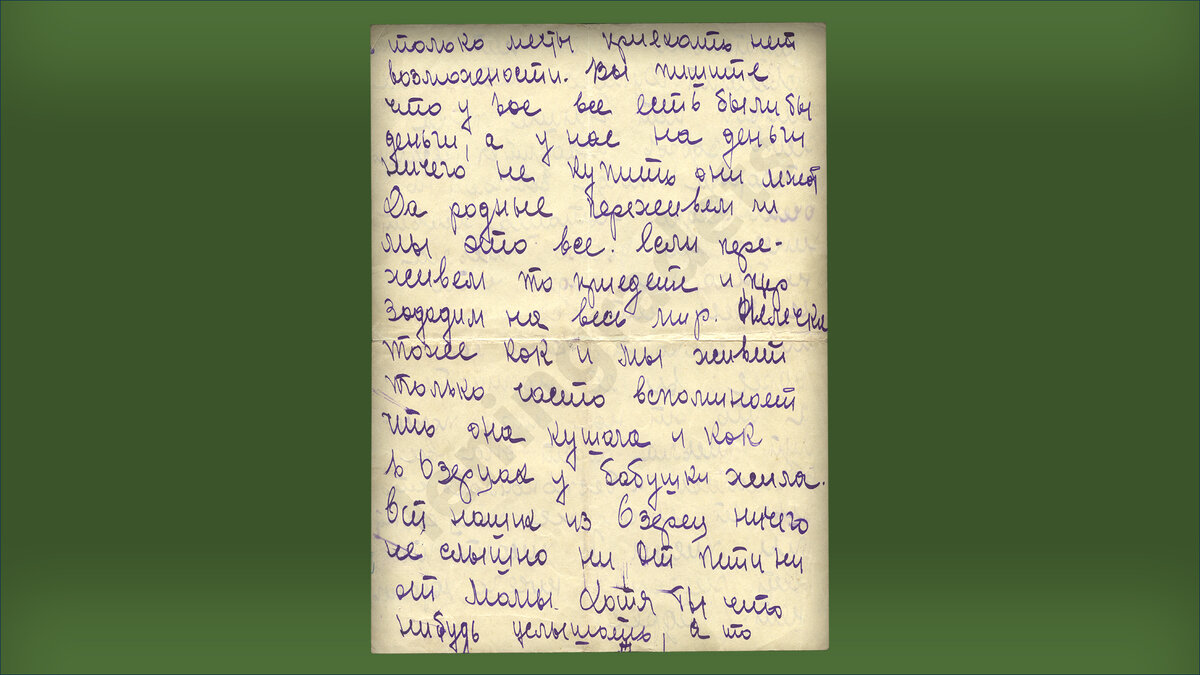 только мечты приехать нет
возможености. Вы пишите
что у вас все есть были бы
деньги, а у нас на деньги
ничего не купить они лежат
Да родные переживем ли
мы это все. Если пере-
живем то приедете и пир
зададим на весь мир. Нелечка
тоже как и мы живет
только часто вспоминает
что она кушала и как
в Озерцах у бабушки жила.
Вот наших из Озерец ничего
не слышно ни от Пети ни
от Мамы. Хотя бы что
нибудь услышать, а то